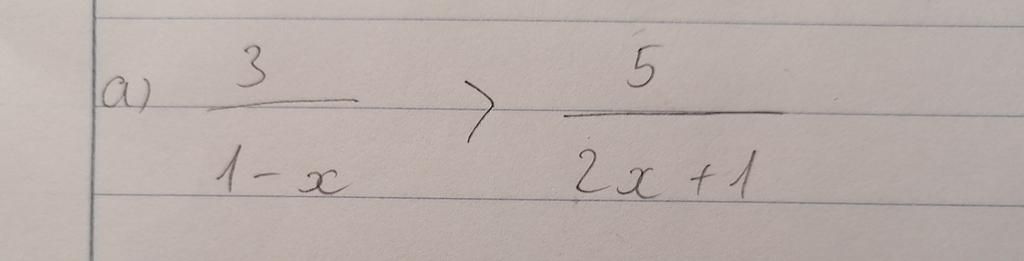 a) 3/(1-x) > 5/(2x+1)